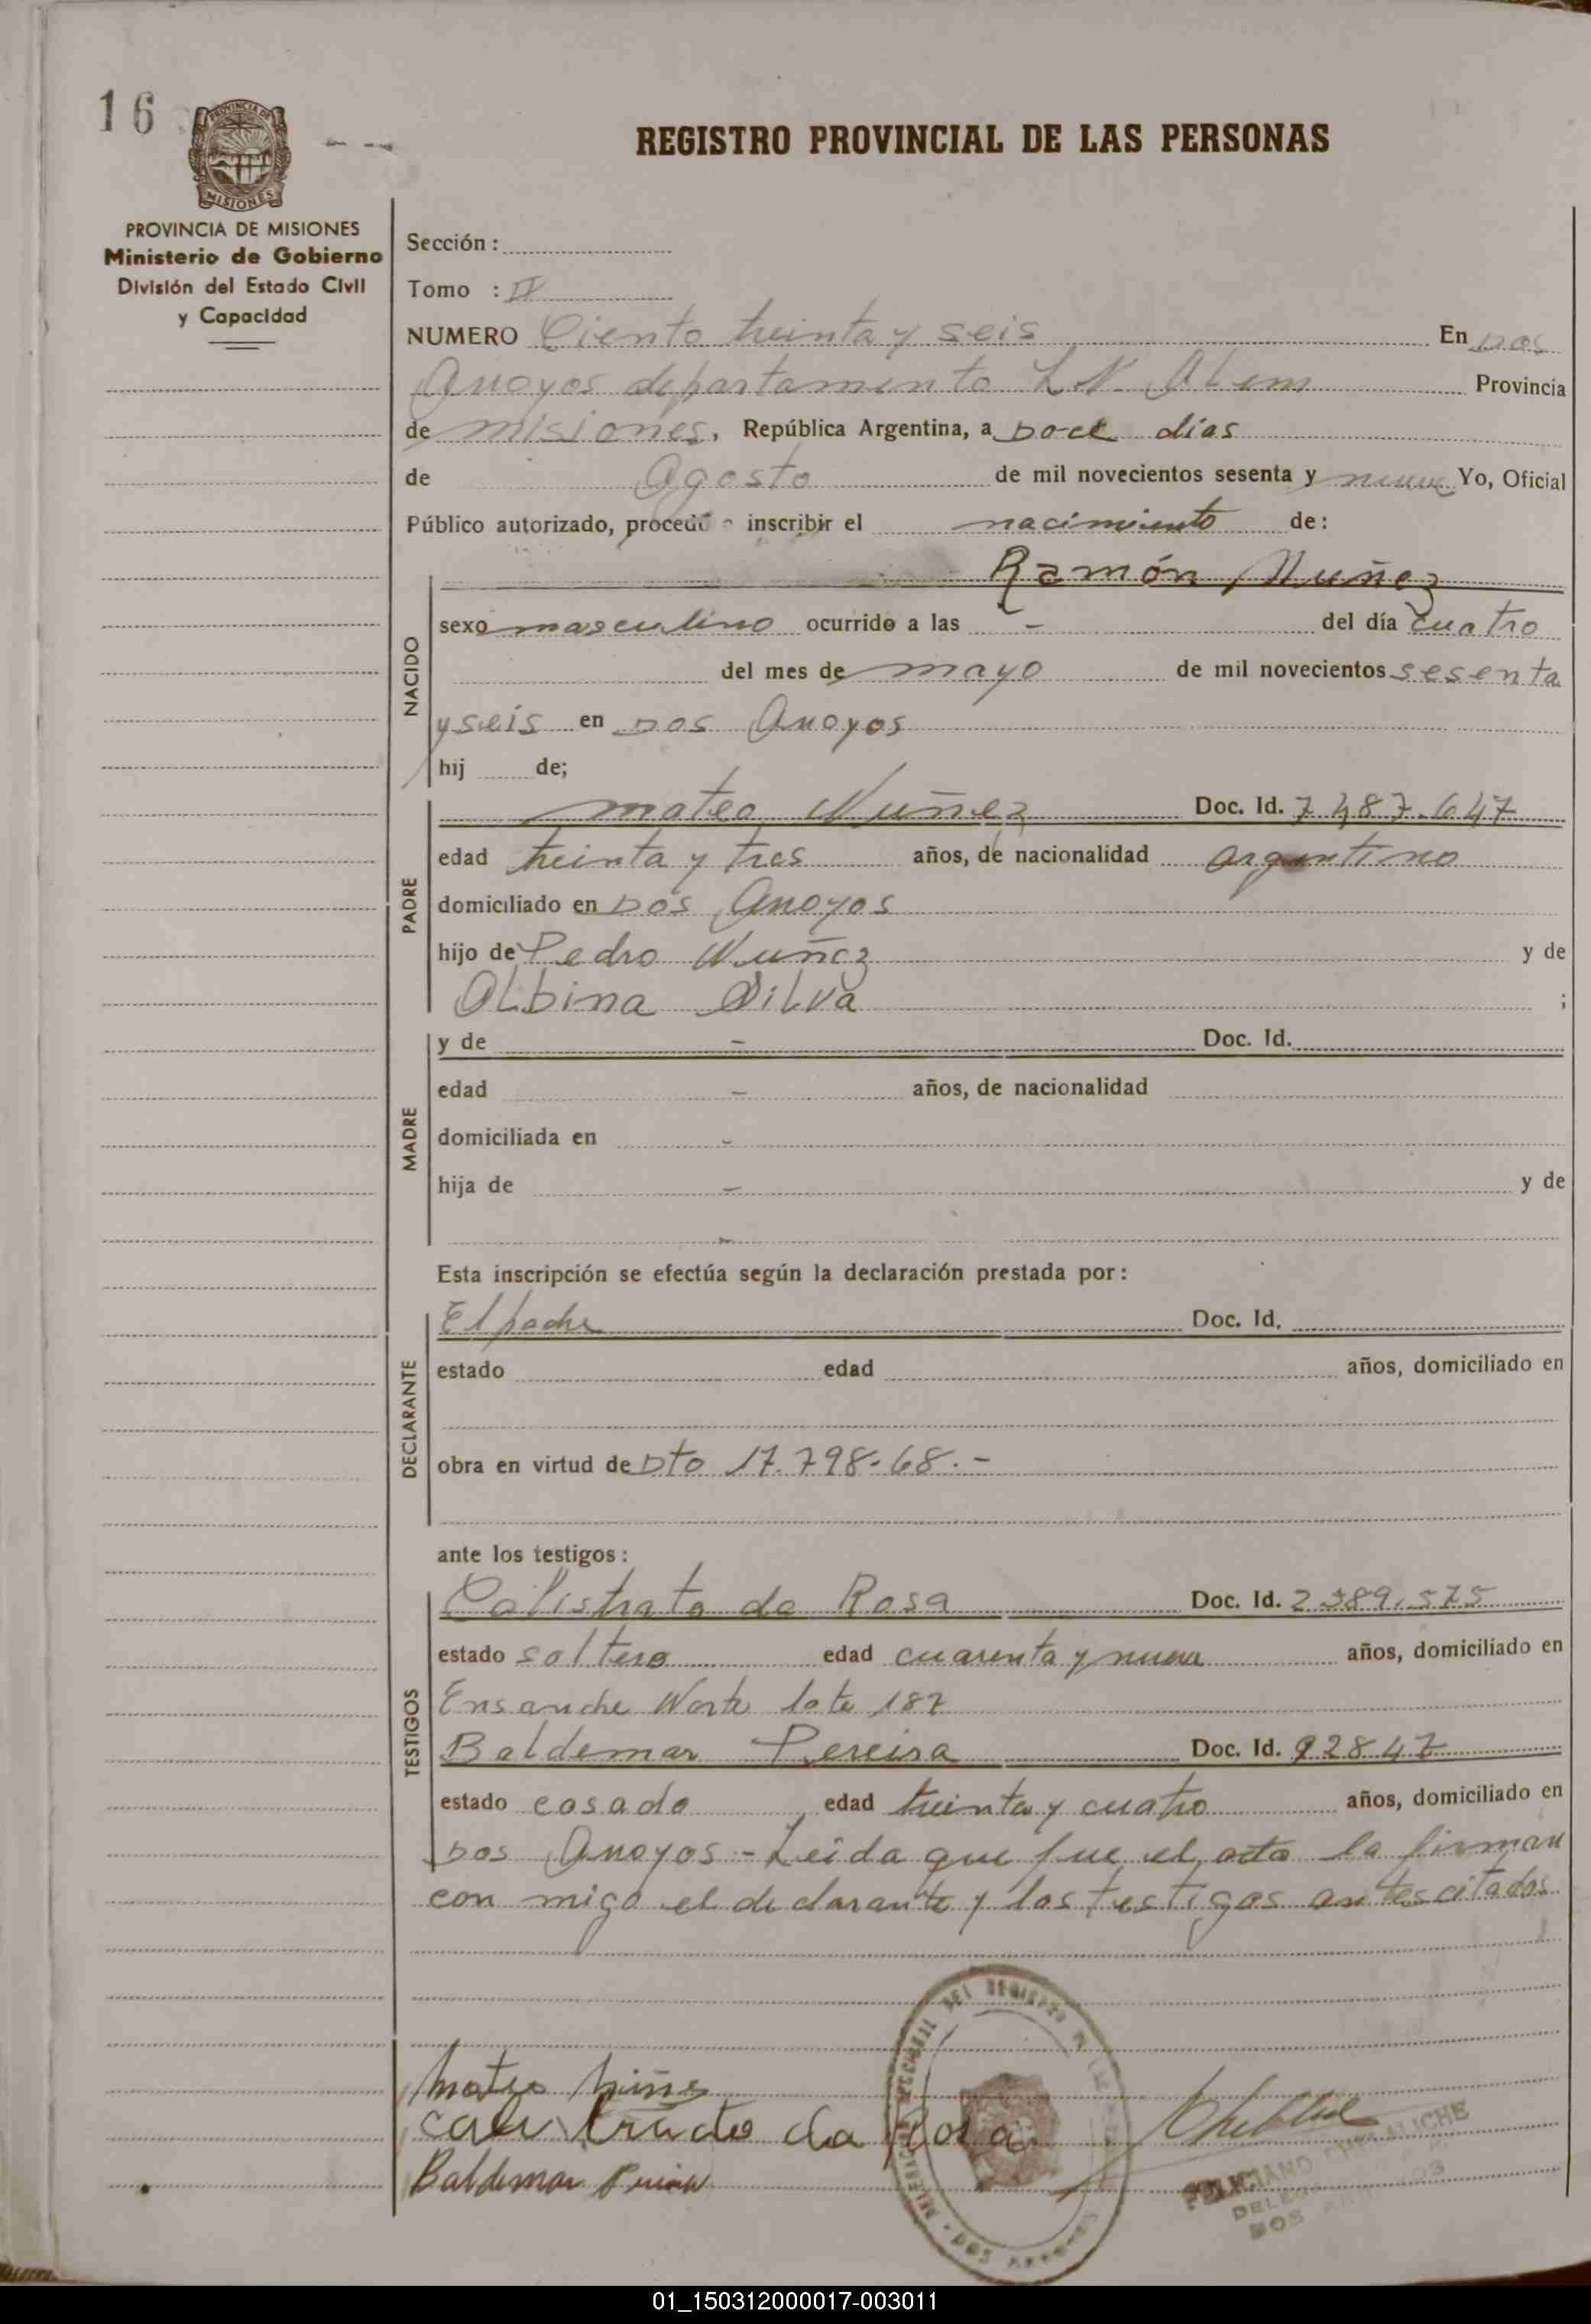 16
PROVINCIA DE
MISIONES
REGISTRO PROVINCIAL DE LAS PERSONAS
PROVINCIA DE MISIONES
Ministerio de Gobierno
División del Estado Civil
y Capacidad
Sección :
Tomo : IV
NUMERO Ciento treinta y seis En Dos
Arroyos departamento L. N. Alem Provincia
de misiones, República Argentina, a Doce días
de Agosto de mil novecientos sesenta y nueve Yo, Oficial
Público autorizado, procedo a inscribir el nacimiento de:
Ramón Nuñez
NACIDO
sexo masculino ocurrido a las - del día cuatro
del mes de mayo de mil novecientos sesenta
y seis en Dos Arroyos
hij de;
PADRE
mateo Nuñez Doc. Id. 7.487.647
edad treinta y tres años, de nacionalidad argentino
domiciliado en Dos Arroyos
hijo de Pedro Nuñez y de
Albina Silva ;
MADRE
y de - Doc. Id.
edad - años, de nacionalidad
domiciliada en -
hija de - y de
-
Esta inscripción se efectúa según la declaración prestada por:
DECLARANTE
El padre Doc. Id.
estado edad años, domiciliado en
obra en virtud de Dto 17.798-68.-
ante los testigos:
TESTIGOS
Calistrato da Rosa Doc. Id. 2.389.575
estado soltero edad cuarenta y nueve años, domiciliado en
Ensanche Norte lote 187
Baldemar Pereira Doc. Id. 92847
estado casado edad treinta y cuatro años, domiciliado en
Dos Arroyos - Leida que fue el acta la firman
con migo el declarante y los testigos antes citados
mateo
da Rosa
Baldemar
FELICIANO
DOS
DOS ARROYOS
01_150312000017-003011